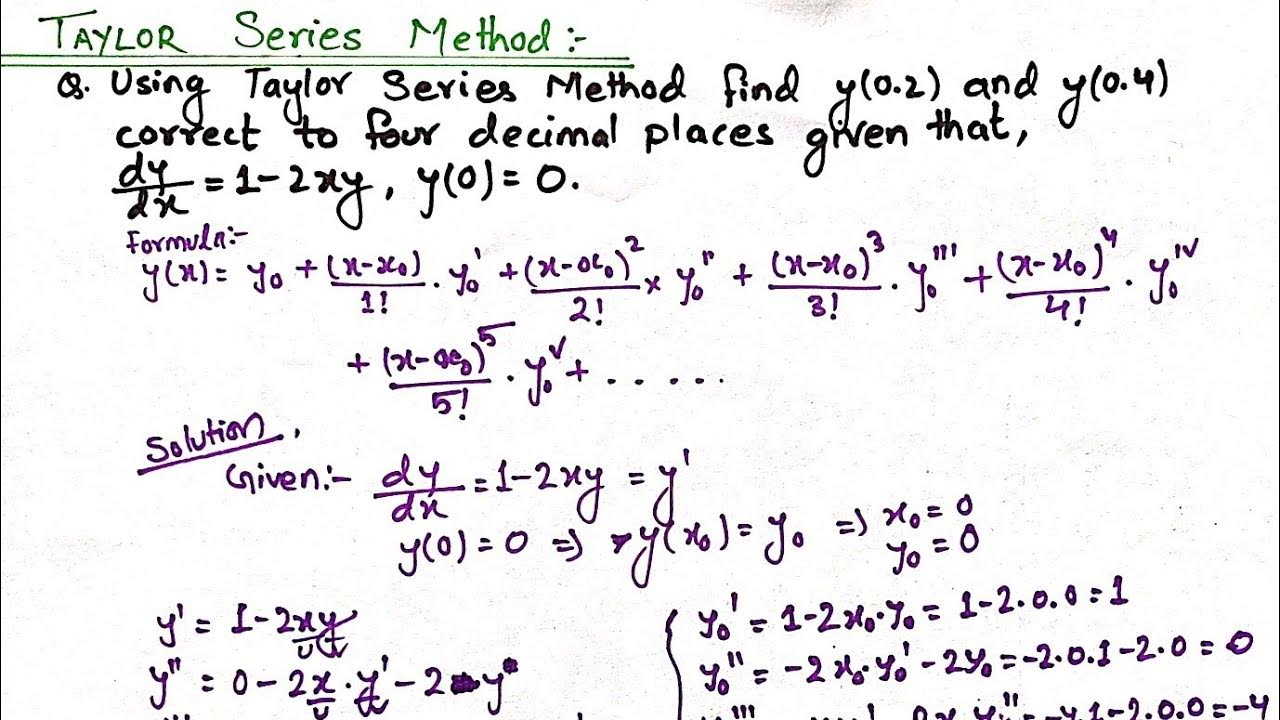 TAYLOR Series Method:-
Q. Using Taylor Series Method find y(0.2) and y(0.4)
correct to four decimal places given that,
dy/dx = 1-2xy, y(0) = 0.
Formula:-
y(x) = y₀ + (x-x₀)/1! . y₀' + (x-x₀)²/2! × y₀'' + (x-x₀)³/3! . y₀''' + (x-x₀)⁴/4! . y₀ⁱᵛ
+ (x-x₀)⁵/5! . y₀ᵛ + . . . . .
Solution,
Given:- dy/dx = 1-2xy = y'
y(0) = 0 => y(x₀) = y₀ => x₀ = 0
y₀ = 0
y' = 1-2xy
u v
y'' = 0 - 2x.y' - 2y
u v
y₀' = 1-2x₀.y₀ = 1-2.0.0 = 1
y₀'' = -2x₀.y₀' - 2y₀ = -2.0.1-2.0 = 0
y₀'' = -4.1-2.0.0 = -4